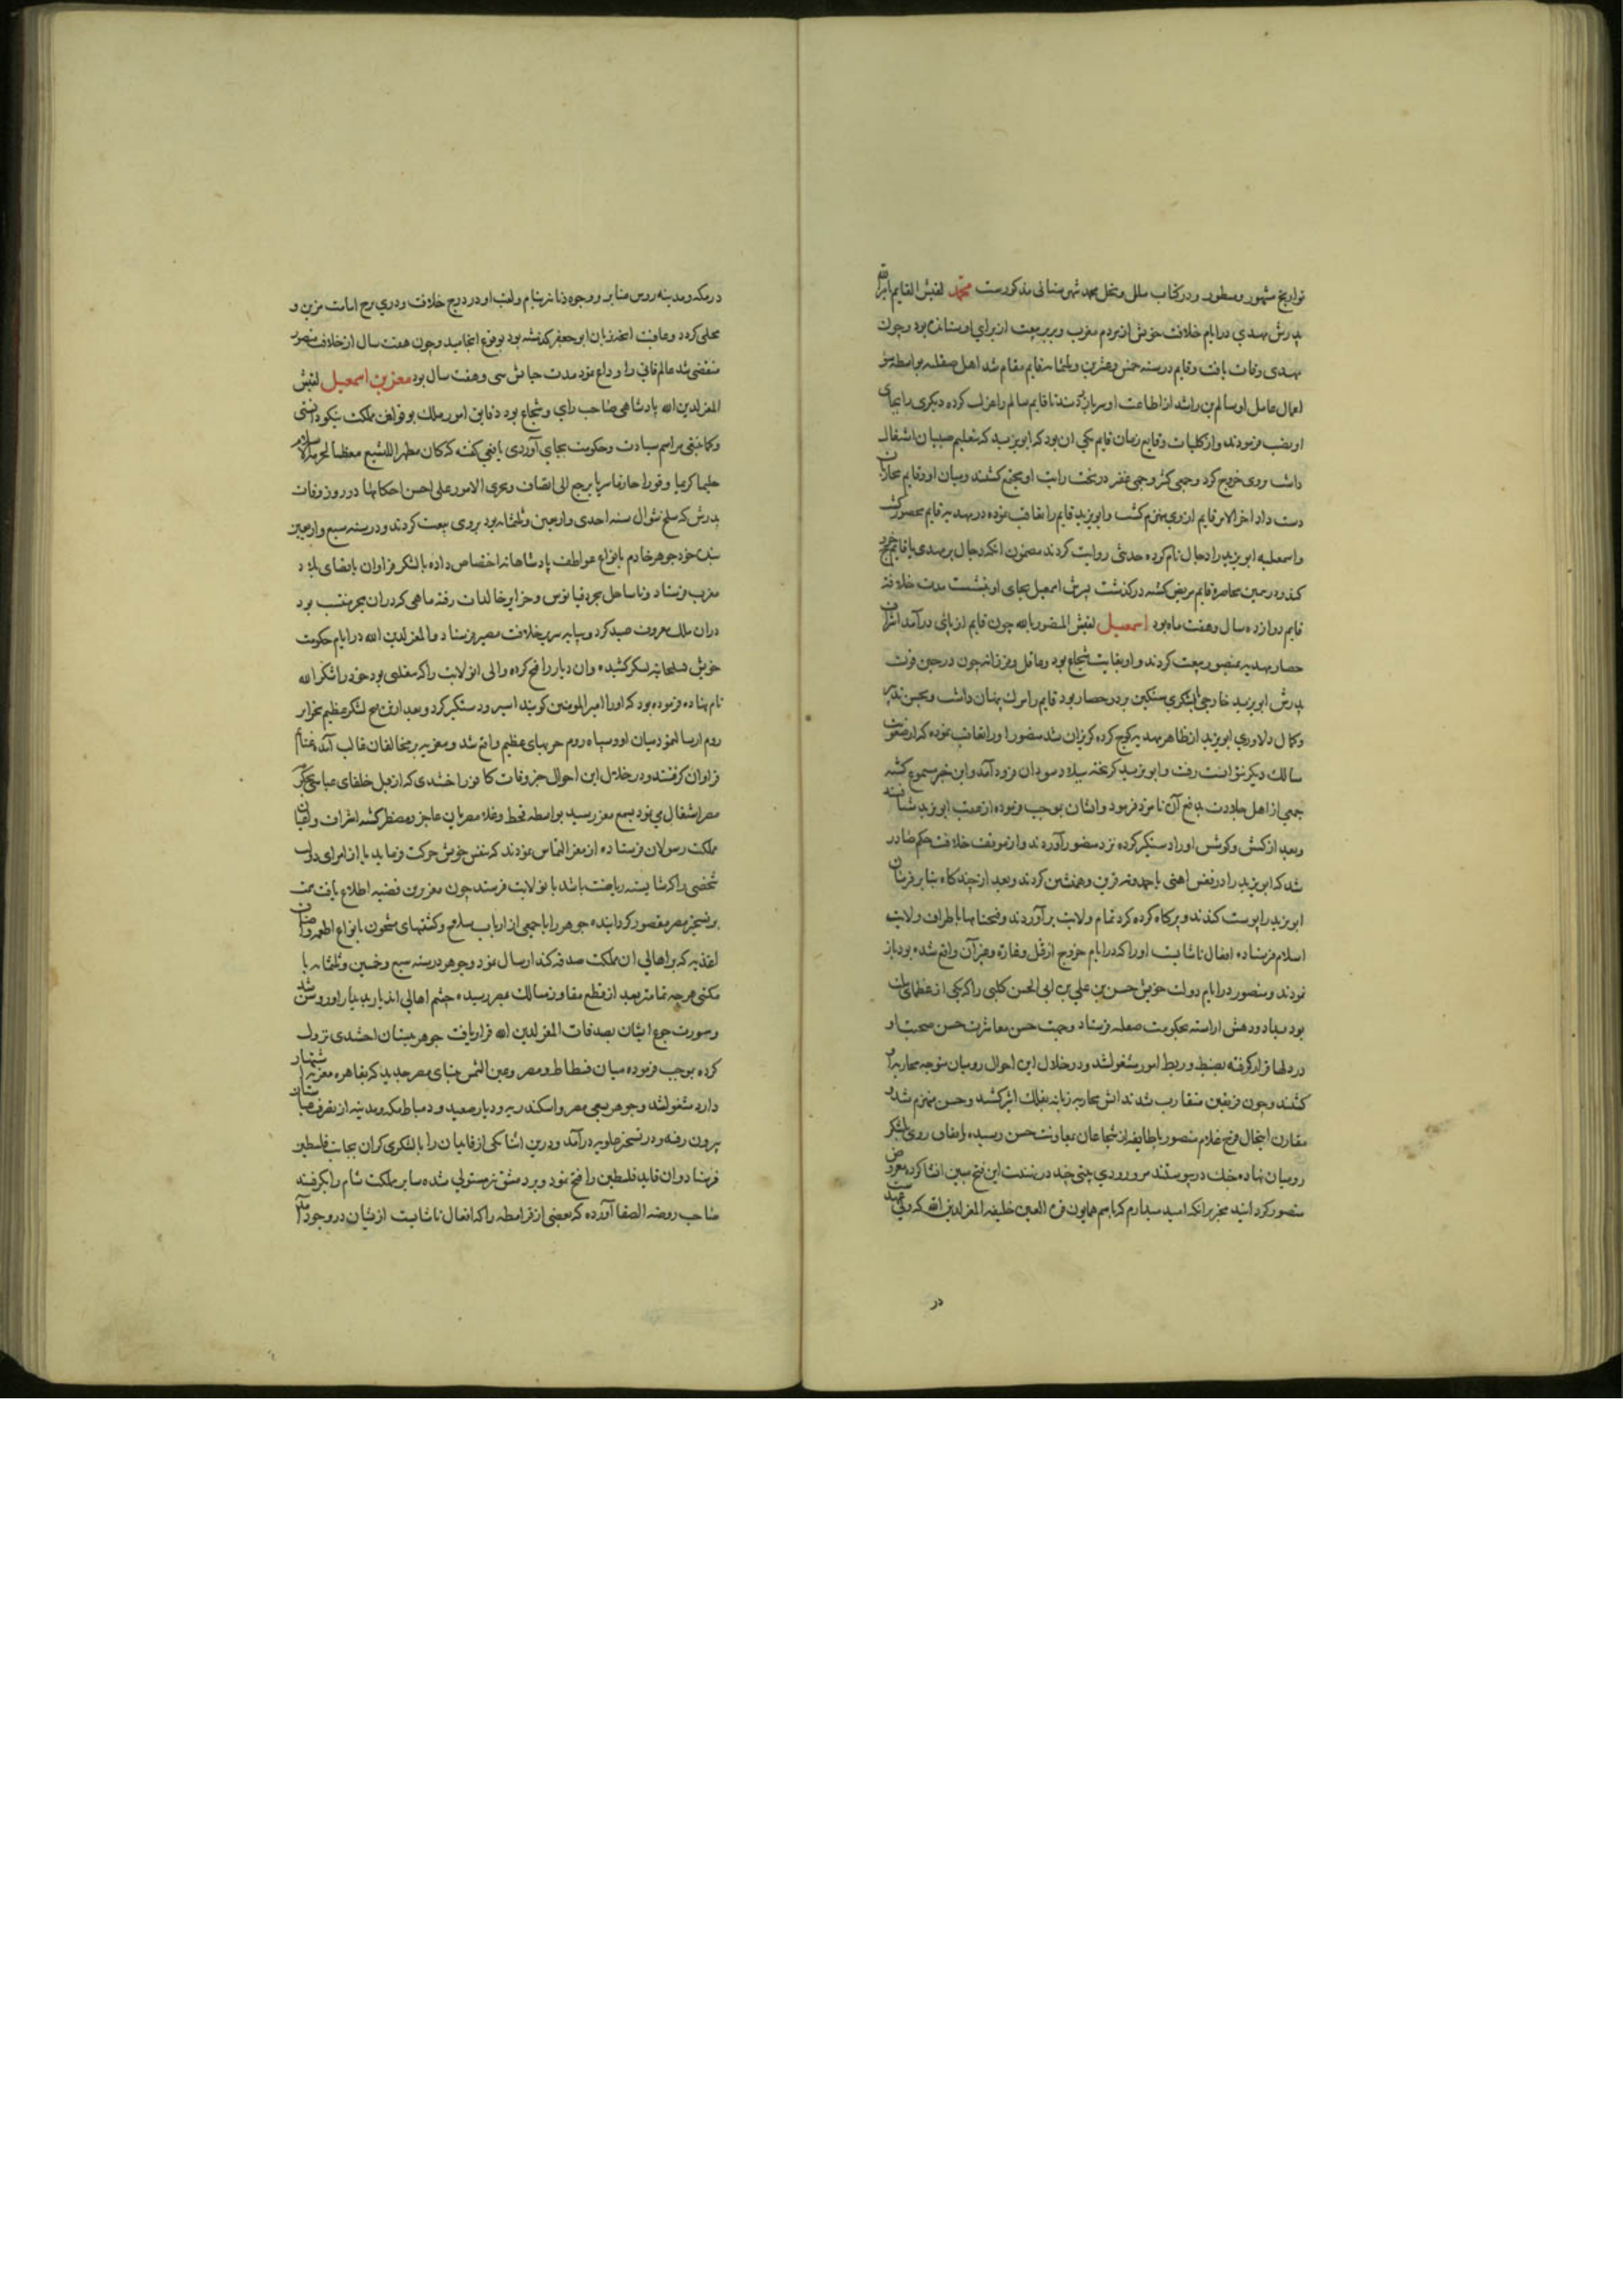 تواریخ مشهور و مسطور و در کتاب ملل و نحل محمد شهرستانی مذکورست محمد لقبش القایم بامرالله
پدرش مهدی در ایام خلافت خویش از مردم مغرب و بربر بیعت از برای او ستانده بود و چون
مهدی وفات یافت و قایم در سنه خمس و عشرین و ثلثمایه قایم مقام شد اهل صقلیه بواسطه سو
اعمال عامل او سالم بن راشد از اطاعت او سر باز زدند تا قایم سالم را عزل کرده دیکری را بجای
او نصب فرمودند و از کلیات وقایع زمان قایم یکی آن بود که ابو یزید که بتعلیم صبیان اشتغال
داشت روی خروج کرد و جمعی کثیر و جمی غفیر در تحت رایت او مجتمع کشتند و میان او و قایم محاربات
دست داد اخر الامر قایم از وی منهزم کشت و ابو یزید قایم را تعاقب نموده در مهدیه قایم محصور کشت
و اسمعیلیه ابو یزید را دجال نام کرده حدیثی روایت کردند مضمون آنکه دجال بر مهدی یا قایم خروج
کند و در حین محاصره قایم مریض کشته درکذشت پسرش اسمعیل بجای او بنشست مدت خلافت
قایم دوازده سال و هفت ماه بود اسمعیل لقبش المنصور بالله چون قایم از پای درآمد اشراف
حصار مهدیه بمنصور بیعت کردند و او بغایت شجاع بود و عاقل و فرزانه چون در حین فوت
پدرش ابو یزید خارجی با لشکری سنکین بر در حصار بود قایم را مرک پنهان داشت و بحسن تدبیر
و کمال دلاوری ابو یزید از ظاهر مهدیه کوچ کرده کریزان شد منصور او را تعاقب نموده که از صعوبت
سالک دیکر نتوانست رفت و ابو یزید کریخته ببلاد سودان فرود آمد و این خبر مسموع کشته
جمعی از اهل جلادت بدفع آن نامزد فرمود و ایشان بموجب فرموده از عقب ابو یزید شتافتند
و بعد از کشش و کوشش او را دستکیر کرده نزد منصور آوردند و از موقف خلافت حکم صادر
شد که ابو یزید را در قفس اهنی با حمدونه قرین و همنشین کردند و بعد از چند کاه بنا بر فرمان
ابو یزید را پوست کندند و پر کاه کرده کرد تمام ولایت برآوردند و فتحنامها باطراف ولایت
اسلام فرستاده افعال ناشایست او را که در ایام خروج از قتل و غارة و غیر آن واقع شده بود باز
نمودند و منصور در ایام دولت خویش حسن بن علی بن ابی الحسن کلبی را که یکی از عظمای
بود بداد و دهش اراسته بحکومت صقلیه فرستاد و جهت حسن معاشرت حسن صحبت او
در دلها قرار کرفته بضبط و ربط امور مشغول شد و در خلال این احوال رومیان متوجه محاربه او
کشتند و چون فریقین متقارب شدند اتش محاربه زبانه بفلک اثیر کشید و حسن منهزم شد و
مقارن اینحال فرخ غلام منصور با طایفه از شجاعان بمعاونت حسن رسیده باتفاق روی بلشکر
رومیان نهاده جنک در پیوستند مروروذی بیتی چند در تهنیت این فتح مبین انشا کرده معروض
منصور کردانید مخبر برانکه امید میدارم که باسم همایون قرة العین خلیفه المعز لدین الله که ولی عهدست
در
در مکه و مدینه روس منابر و وجوه دنانیر بنام و لقب او در درج خلافت و دری برج امامت مزین و
محلی کردد و عاقبت انچه بر زبان ابو جعفر کذشته بود بوقوع انجامید و چون هفت سال از خلافت منصور
منقضی شد عالم فانی را وداع نمود مدت حیاتش سی و هفت سال بود معز بن اسمعیل لقبش
المعز لدین الله پادشاهی صاحب رای و شجاع بود دقایق امور ملک بوقوانین مملکت نیکو دانستی
و کما ینبغی مراسم سیادت و حکومت بجای آوردی یافعی کفته که کان مظهرا للتشیع معظما لحرمة الاسلام
حلیما کریما وقورا حازما سریا یرجع الی انصاف و یجری الامور علی احسن احکامها در روز وفات
پدرش که سلخ شوال سنه احدی و اربعین و ثلثمایه بود بروی بیعت کردند و در سنه سبع و اربعین
بنده خود جوهر خادم بانواع عواطف پادشاهانه اختصاص داده با لشکر فراوان باقصای بلاد
مغرب فرستاد و تا ساحل بحر اوقیانوس و جزایر خالدات رفته ماهی که در ان بحر منتسب بود
دران ملک معروف صید کرد و بپایه سریر خلافت مصیر فرستاد و المعز لدین الله در ایام حکومت
خویش بسلجماسه لشکر کشیده و ان دیار را فتح کرده والی انولایت را که متغلبی بود خود را شاکر الله
نام نهاده و فرموده بود که او را امیر المومنین کویند اسیر و دستکیر کرد و بعد از فتح لشکر عظیم بجزایر
روم ارسال نمود میان او و سپاه روم حربهای عظیم واقع شد و مغربیه بر مخالفان غالب آمده غنایم
فراوان کرفتند و در خلال این احوال خبر وفات کافور اخشدی که از قبل خلفای عباسی بحکومت
مصر اشتغال می نمود بسمع معز رسید بواسطه قحط و غلا مصریان عاجز و مضطر کشته اشراف و اعیان
مملکت رسولان فرستاده از معز التماس نمودند که بنفس خویش حرکت فرماید یا از امرای دولت
شخصی را که شایسته ریاست باشد بانولایت فرستد چون معز برین قضیه اطلاع یافت همت
بر تسخیر مصر مقصور کردانیده جوهر را با جمعی از ارباب سلاح و کشتیهای مشحون بانواع اطعمه و اصناف
اغذیه که بر اهالی ان مملکت صدقه کند ارسال نمود و جوهر در سنه سبع و خمسین و ثلثمایه با
مکنتی هر چه تمامتر بعد از قطع مفاوز و مسالک بمصر رسیده چشم اهالی ان دیار بدیدار او روشن شد
و سورت جوع ایشان بصدقات المعز لدین الله قرار یافت جوهر ببستان اخشدی نزول
کرده بموجب فرموده میان فسطاط و مصر و عین الشمس بنای مصر جدید که بقاهره معزیه اشتهار
دارد مشغول شد و جوهر سعی مصر و اسکندریه و دیار صعید و دمیاط مکه و مدینه از تصرف عباسیان
بیرون رفته و در تسخیر علویه درآمد و درین اثنا یکی از قایدان را با لشکری کران بجانب فلسطین
فرستاد و ان قاید فلسطین را فتح نمود و بر دمشق نیز مستولی شده سایر مملکت شام را بکرفتند
صاحب روضه الصفا آورده که بعضی از قرامطه را که افعال ناشایست از یشان در وجود آمد